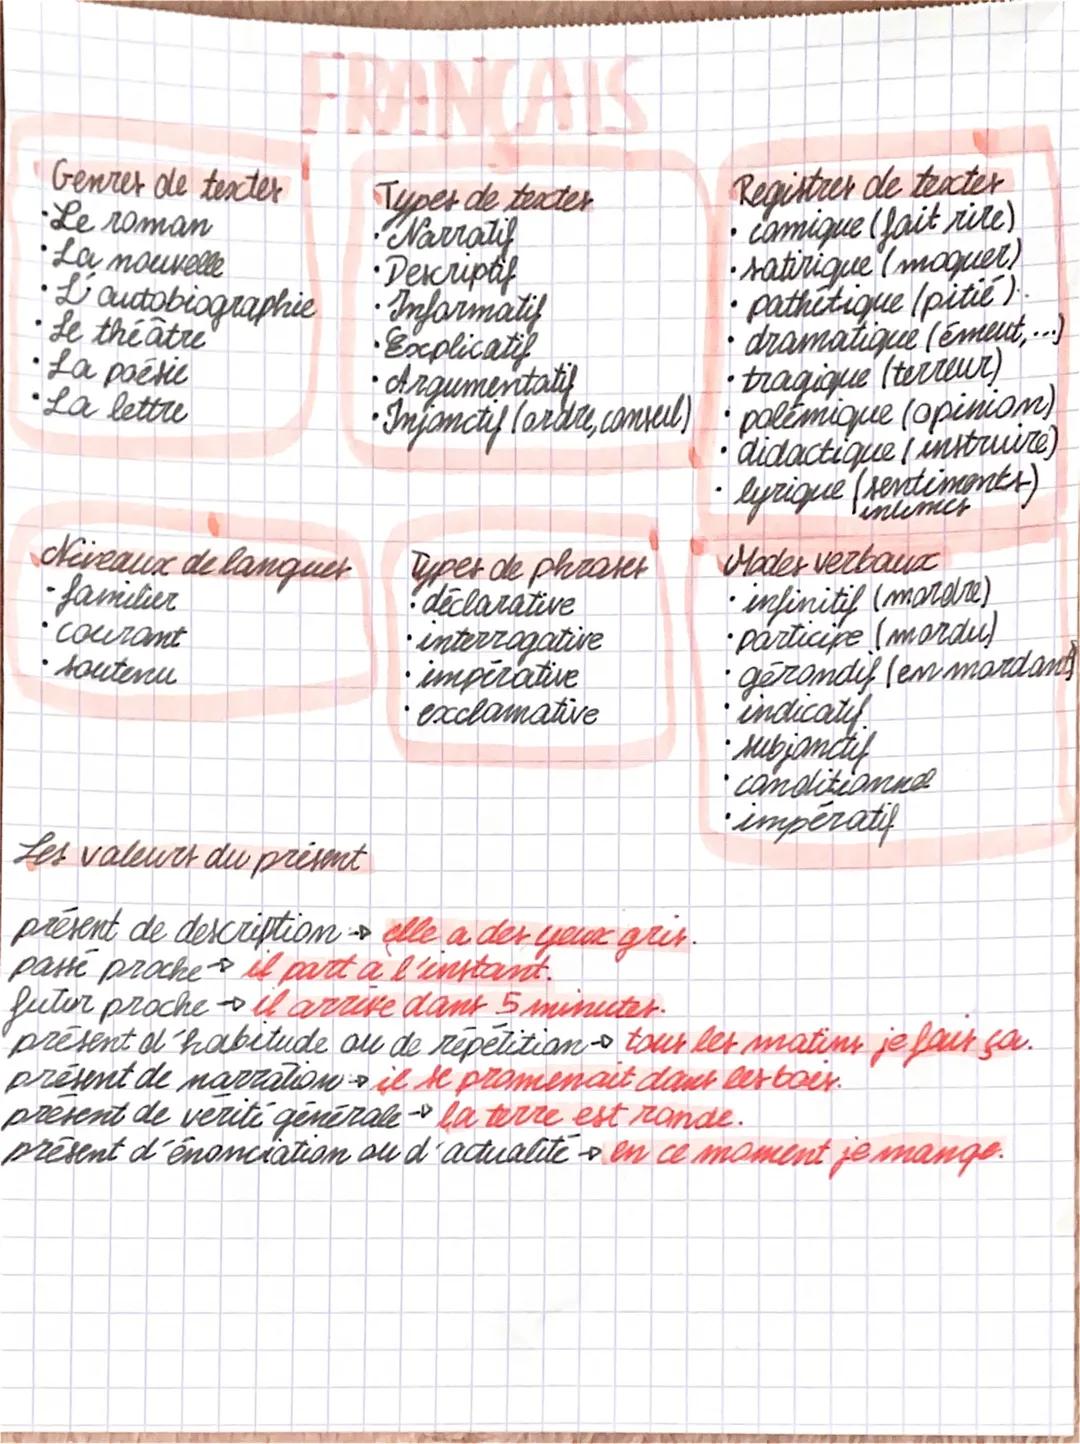 FRANÇAIS
Genres de textes
· Le roman
· La nouvelle
· L'autobiographie
· Le théâtre
· La poésie
· La lettre
Types de textes
· Narratif
· Descriptif
· Informatif
· Explicatif
· Argumentatif
· Injonctif (ordre, conseil)
Registres de textes
· comique (fait rire)
· satirique (moquer)
· pathétique (pitié)
· dramatique (émeut,...)
· tragique (terreur)
· polémique (opinion)
· didactique (instruire)
· lyrique (sentiments)
intimes
Niveaux de langues
· familier
· courant
· soutenu
Types de phrases
· déclarative
· interrogative
· impérative
· exclamative
Modes verbaux
· infinitif (mordre)
· participe (mordu)
· gérondif (en mordant)
· indicatif
· subjonctif
· conditionnel
· impératif
Les valeurs du présent
présent de description → elle a des yeux gris.
passé proche → il part à l'instant.
futur proche → il arrive dans 5 minutes.
présent d'habitude ou de répétition → tous les matins je fais ça.
présent de narration → il se promenait dans les bois.
présent de vérité générale → la terre est ronde.
présent d'énonciation ou d'actualité → en ce moment je mange.